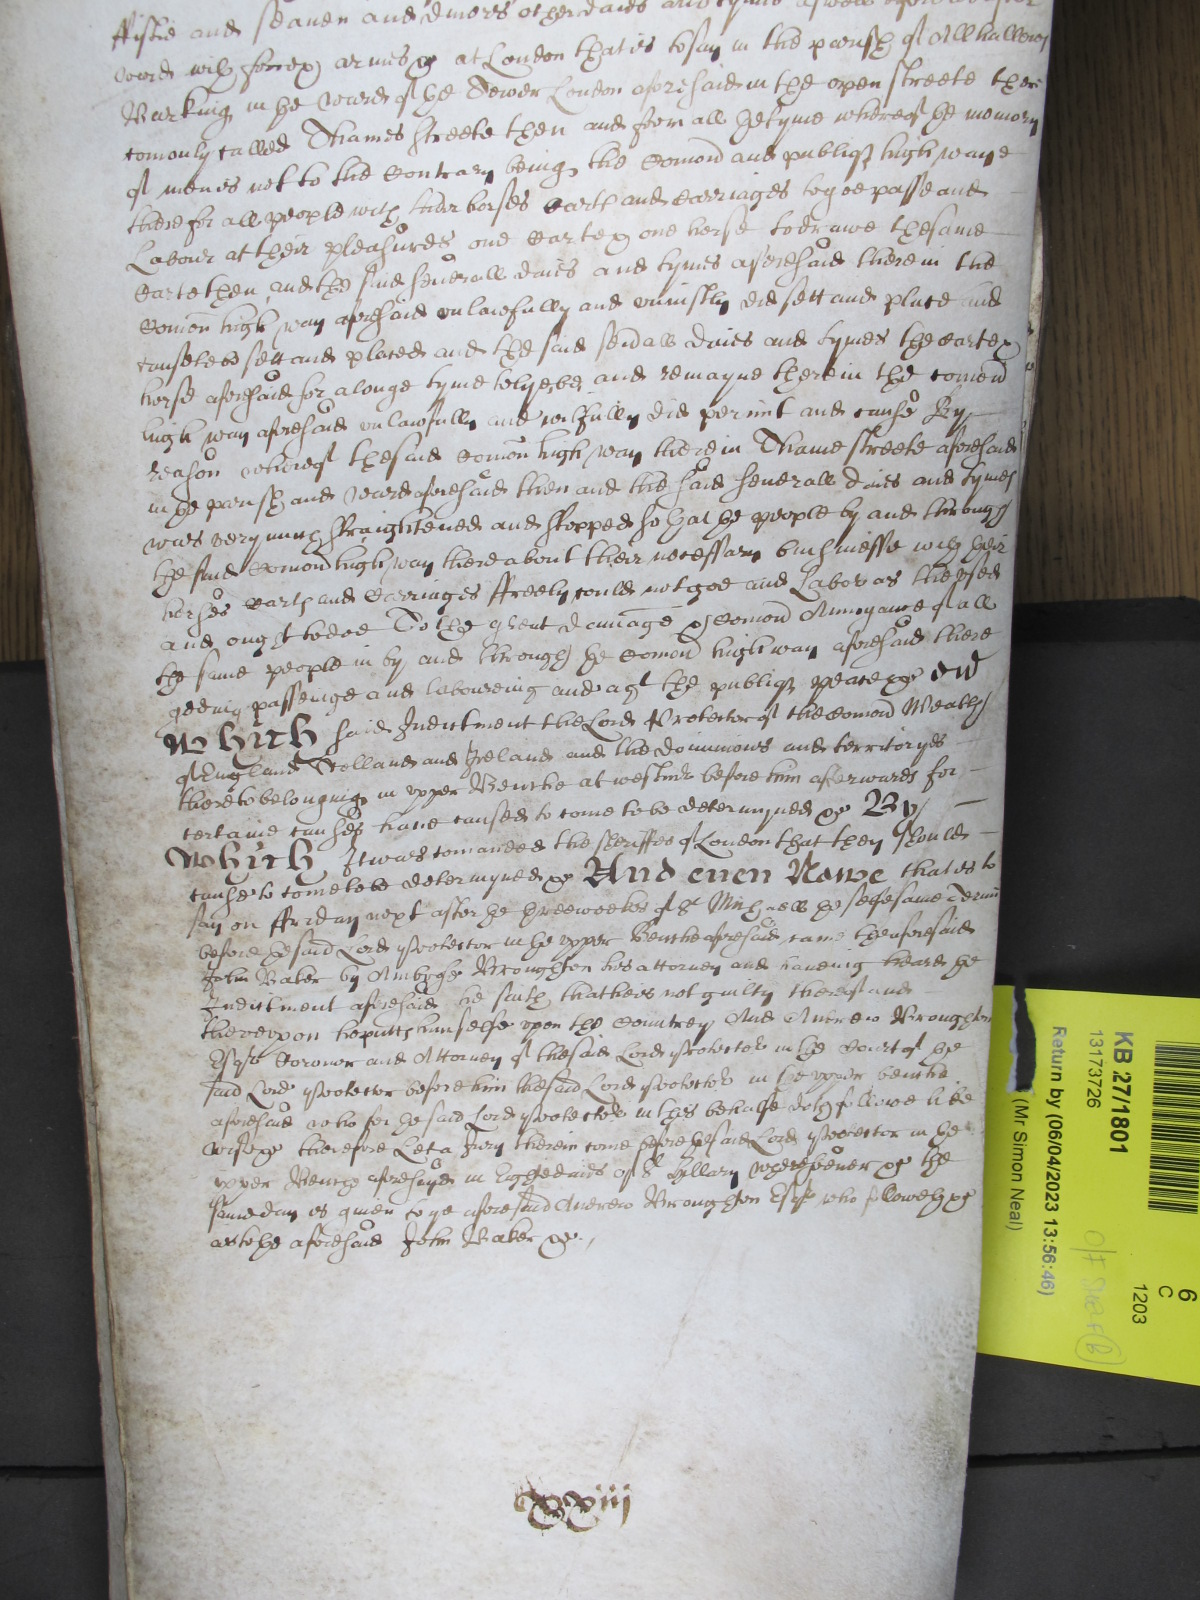 ffiftie and seaven and divers other daies and tymes aswell before as after
wards with force & armes &c at London that is to say in the parish of Allhallowes
Barking in the ward of the Tower London aforesaid in the open streete there
comonly called Thames streete then and from all the tyme whereof the memory
of men is not to the Contrary being the Comon and publiq high waye
there for all people with their horses Carts and Carriages to goe passe and
Labour at their pleasures one Carte & one horse to drawe the same
Carte then and the said severall daies and tymes aforesaid there in the
Comon high way aforesaid unlawfully and uniustly did sett and place and
caused to be sett and placed and the said sevall daies and tymes the Carte &
horse aforesaid for a longe tyme to lye be and remayne there in the comon
high way aforesaid unlawfully and wilfully did permit and cause By
reason whereof the said Comon high way there in Thame streete aforesaid
in the parish and ward aforesaid then and the said severall daies and tymes
was very much straightened and stopped so that the people by and through
the said Comon high way there about their necessary businesse with their
horses Carts and Carriages ffreely could not goe and Labor as they used
and ought to doe To the great damage & Comon Annoyance of all
the same people in by and through the Comon high way aforesaid there
goeing passeinge and laboureing and agt the publiq peace &c
Which said Indictment the Lord Protector of the Comon Wealth
of England Scotland and Ireland and the dominions and territoryes
thereto belonging in upper Benche at westmr before him afterwards for
certaine causes have caused to come to be determyned &c By
Which It was comanded the sheriffes of London that they should
cause to come to be determyned &c And even Nowe that is to
say on ffriday next after the three weekes of St Michaell the selfe same Terme
before the said Lord Protector in the upper Benche aforesaid came the aforesaid
John Baker by Ambrose Broughton his attorney and haveing heard the
Indictment aforesaid he saith that he is not guilty thereof and
thereupon he putts himselfe upon the Countrey And Andrew Broughton
Esqr Coroner and Attorney of the said Lord Protector in the Court of the
said Lord Protector before him the said Lord Protector in the upper benche
aforesaid who for the said Lord Protector in this behalfe doth followe like
wise &c therefore Let a Jury therein come before the said Lord Protector in the
upper Benche aforesaid in Eight daies of St Hillary wheresoever &c the
same day is given to ye aforesaid Andrew Broughton Esqr who followeth &c
as to the aforesaid John Baker &c.
xxiij
KB 27/1801
13173726
Return by (06/04/2023 13:56:46)
(Mr Simon Neal)
6
C
1203